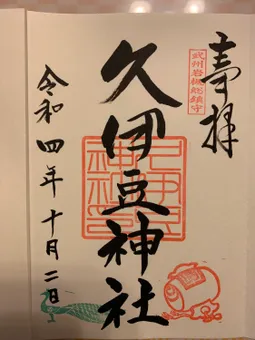 奉拝
武州岩槻総鎮守
久伊豆神社
久伊豆神社印
令和四年十月二日